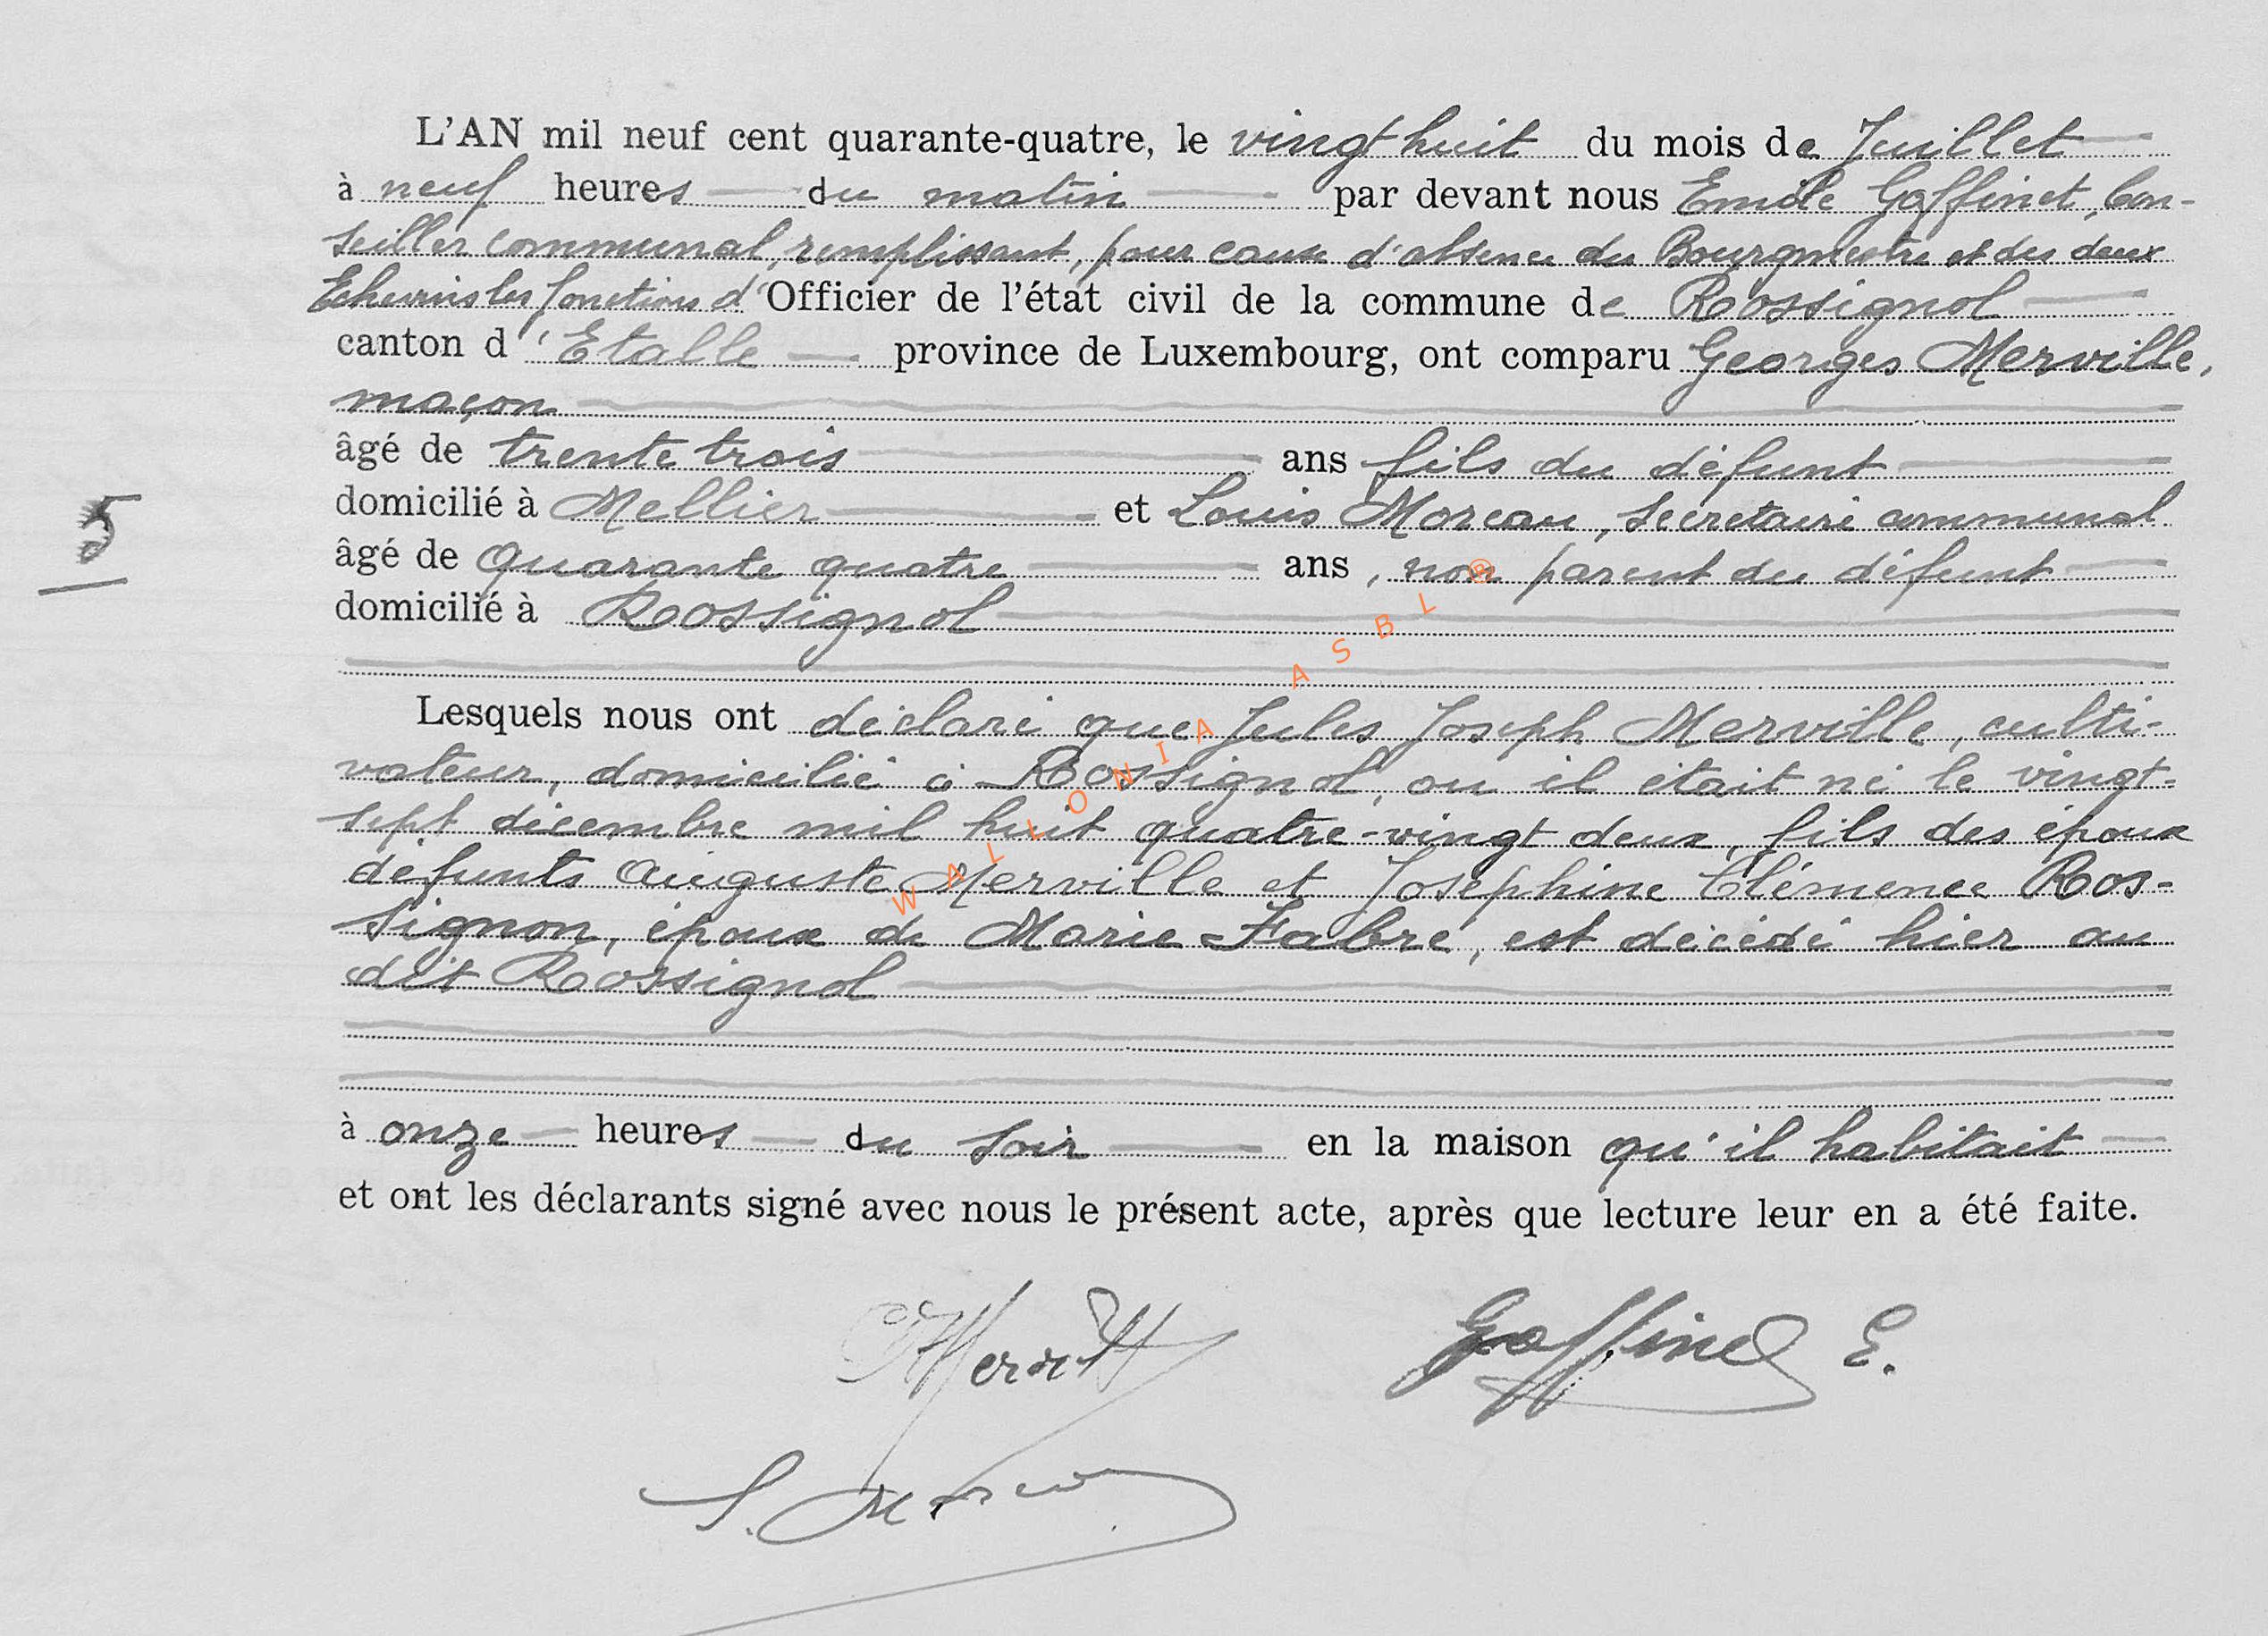 L'AN mil neuf cent quarante-quatre, le vingt huit du mois de Juillet
à neuf heures du matin par devant nous Emile Goffinet, Con-
seiller communal, remplissant, pour cause d'absence du Bourgmestre et des deux
Echevins les fonctions d'Officier de l'état civil de la commune de Rossignol
canton d'Etalle province de Luxembourg, ont comparu Georges Merville,
maçon
âgé de trente trois ans fils du défunt
domicilié à Mellier et Louis Moreau, secrétaire communal
5
âgé de quarante quatre ans, non parent du défunt
domicilié à Rossignol
Lesquels nous ont déclaré que Jules Joseph Merville, culti-
vateur, domicilié à Rossignol, ou il était né le vingt-
sept décembre mil huit quatre-vingt deux, fils des époux
défunts Auguste Merville et Joséphine Clémence Ros-
signon, époux de Marie Fabré, est décédé hier au
dit Rossignol
à onze heures du soir en la maison qu'il habitait
et ont les déclarants signé avec nous le présent acte, après que lecture leur en a été faite.
Goffinet E.
WALLONIA ASBL ®